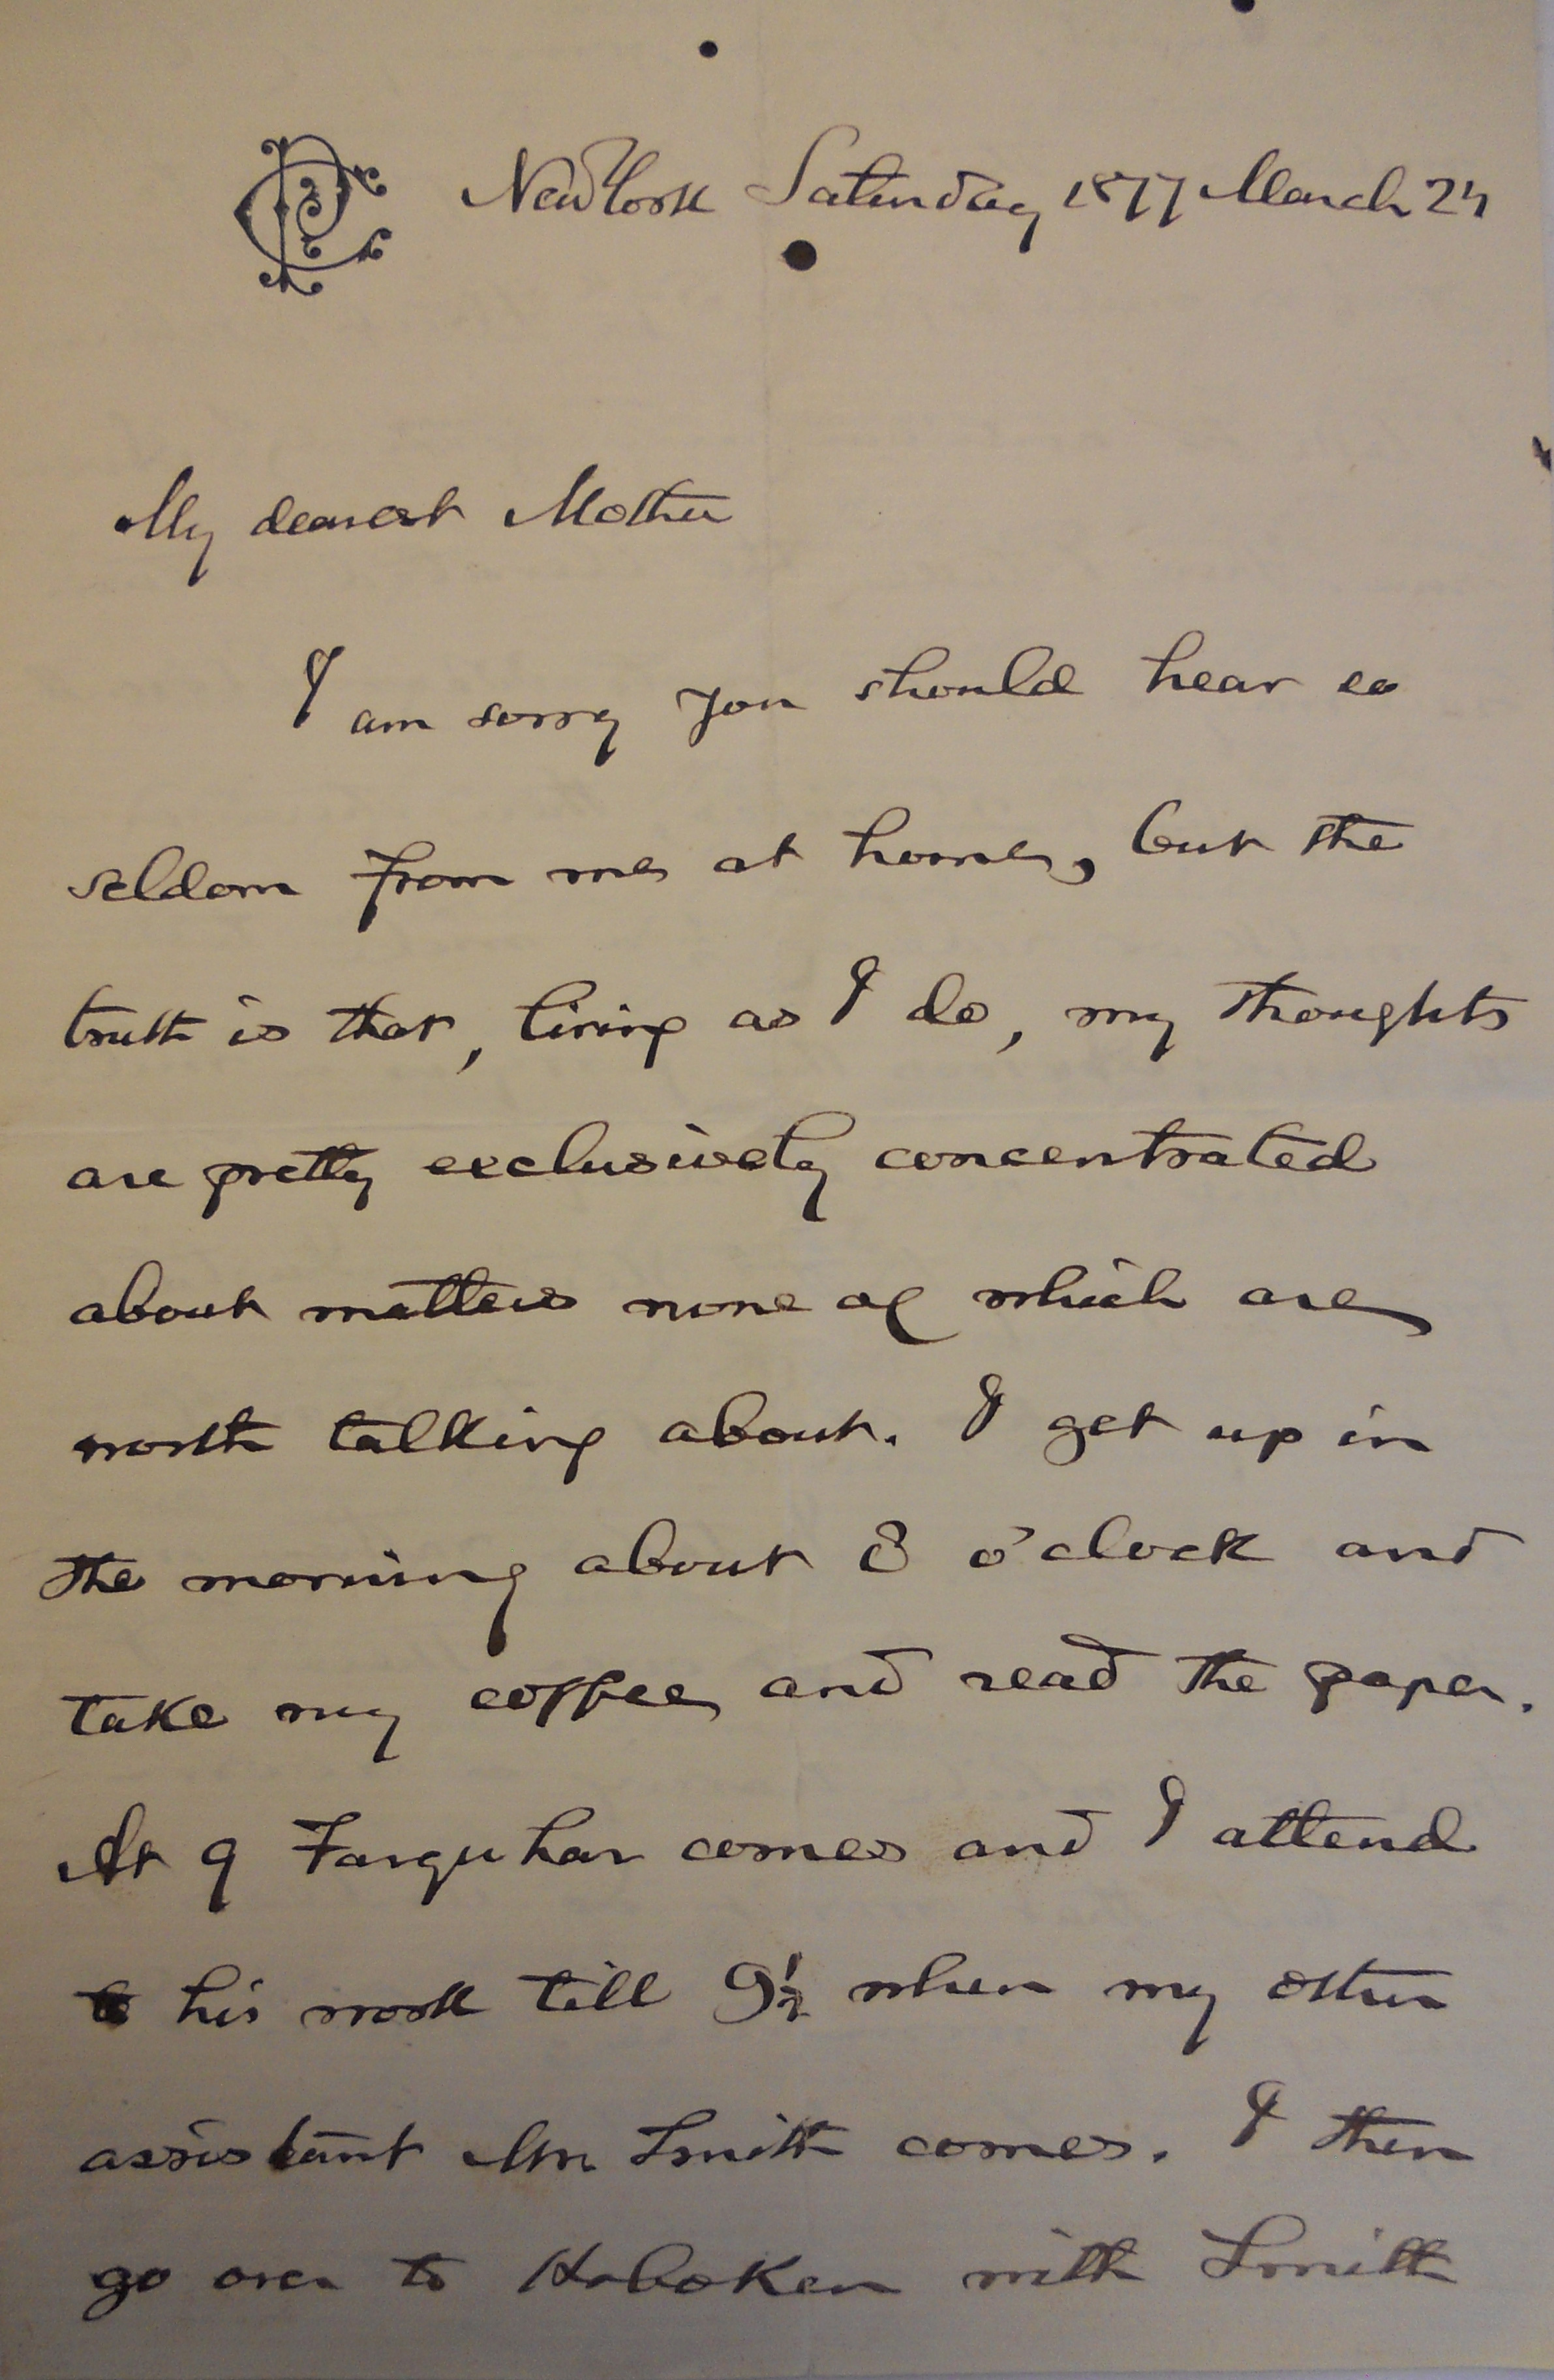 New York Saturday 1877 March 24
My dearest Mother
I am sorry you should hear so
seldom from me at home, but the
truth is that, living as I do, my thoughts
are pretty exclusively concentrated
about matters none of which are
worth talking about. I get up in
the morning about 8 o'clock and
take my coffee and read the paper.
At 9 Farquhar comes and I attend
to his work till 9½ when my other
assistant Mr Smith comes. I then
go over to Hoboken with Smith